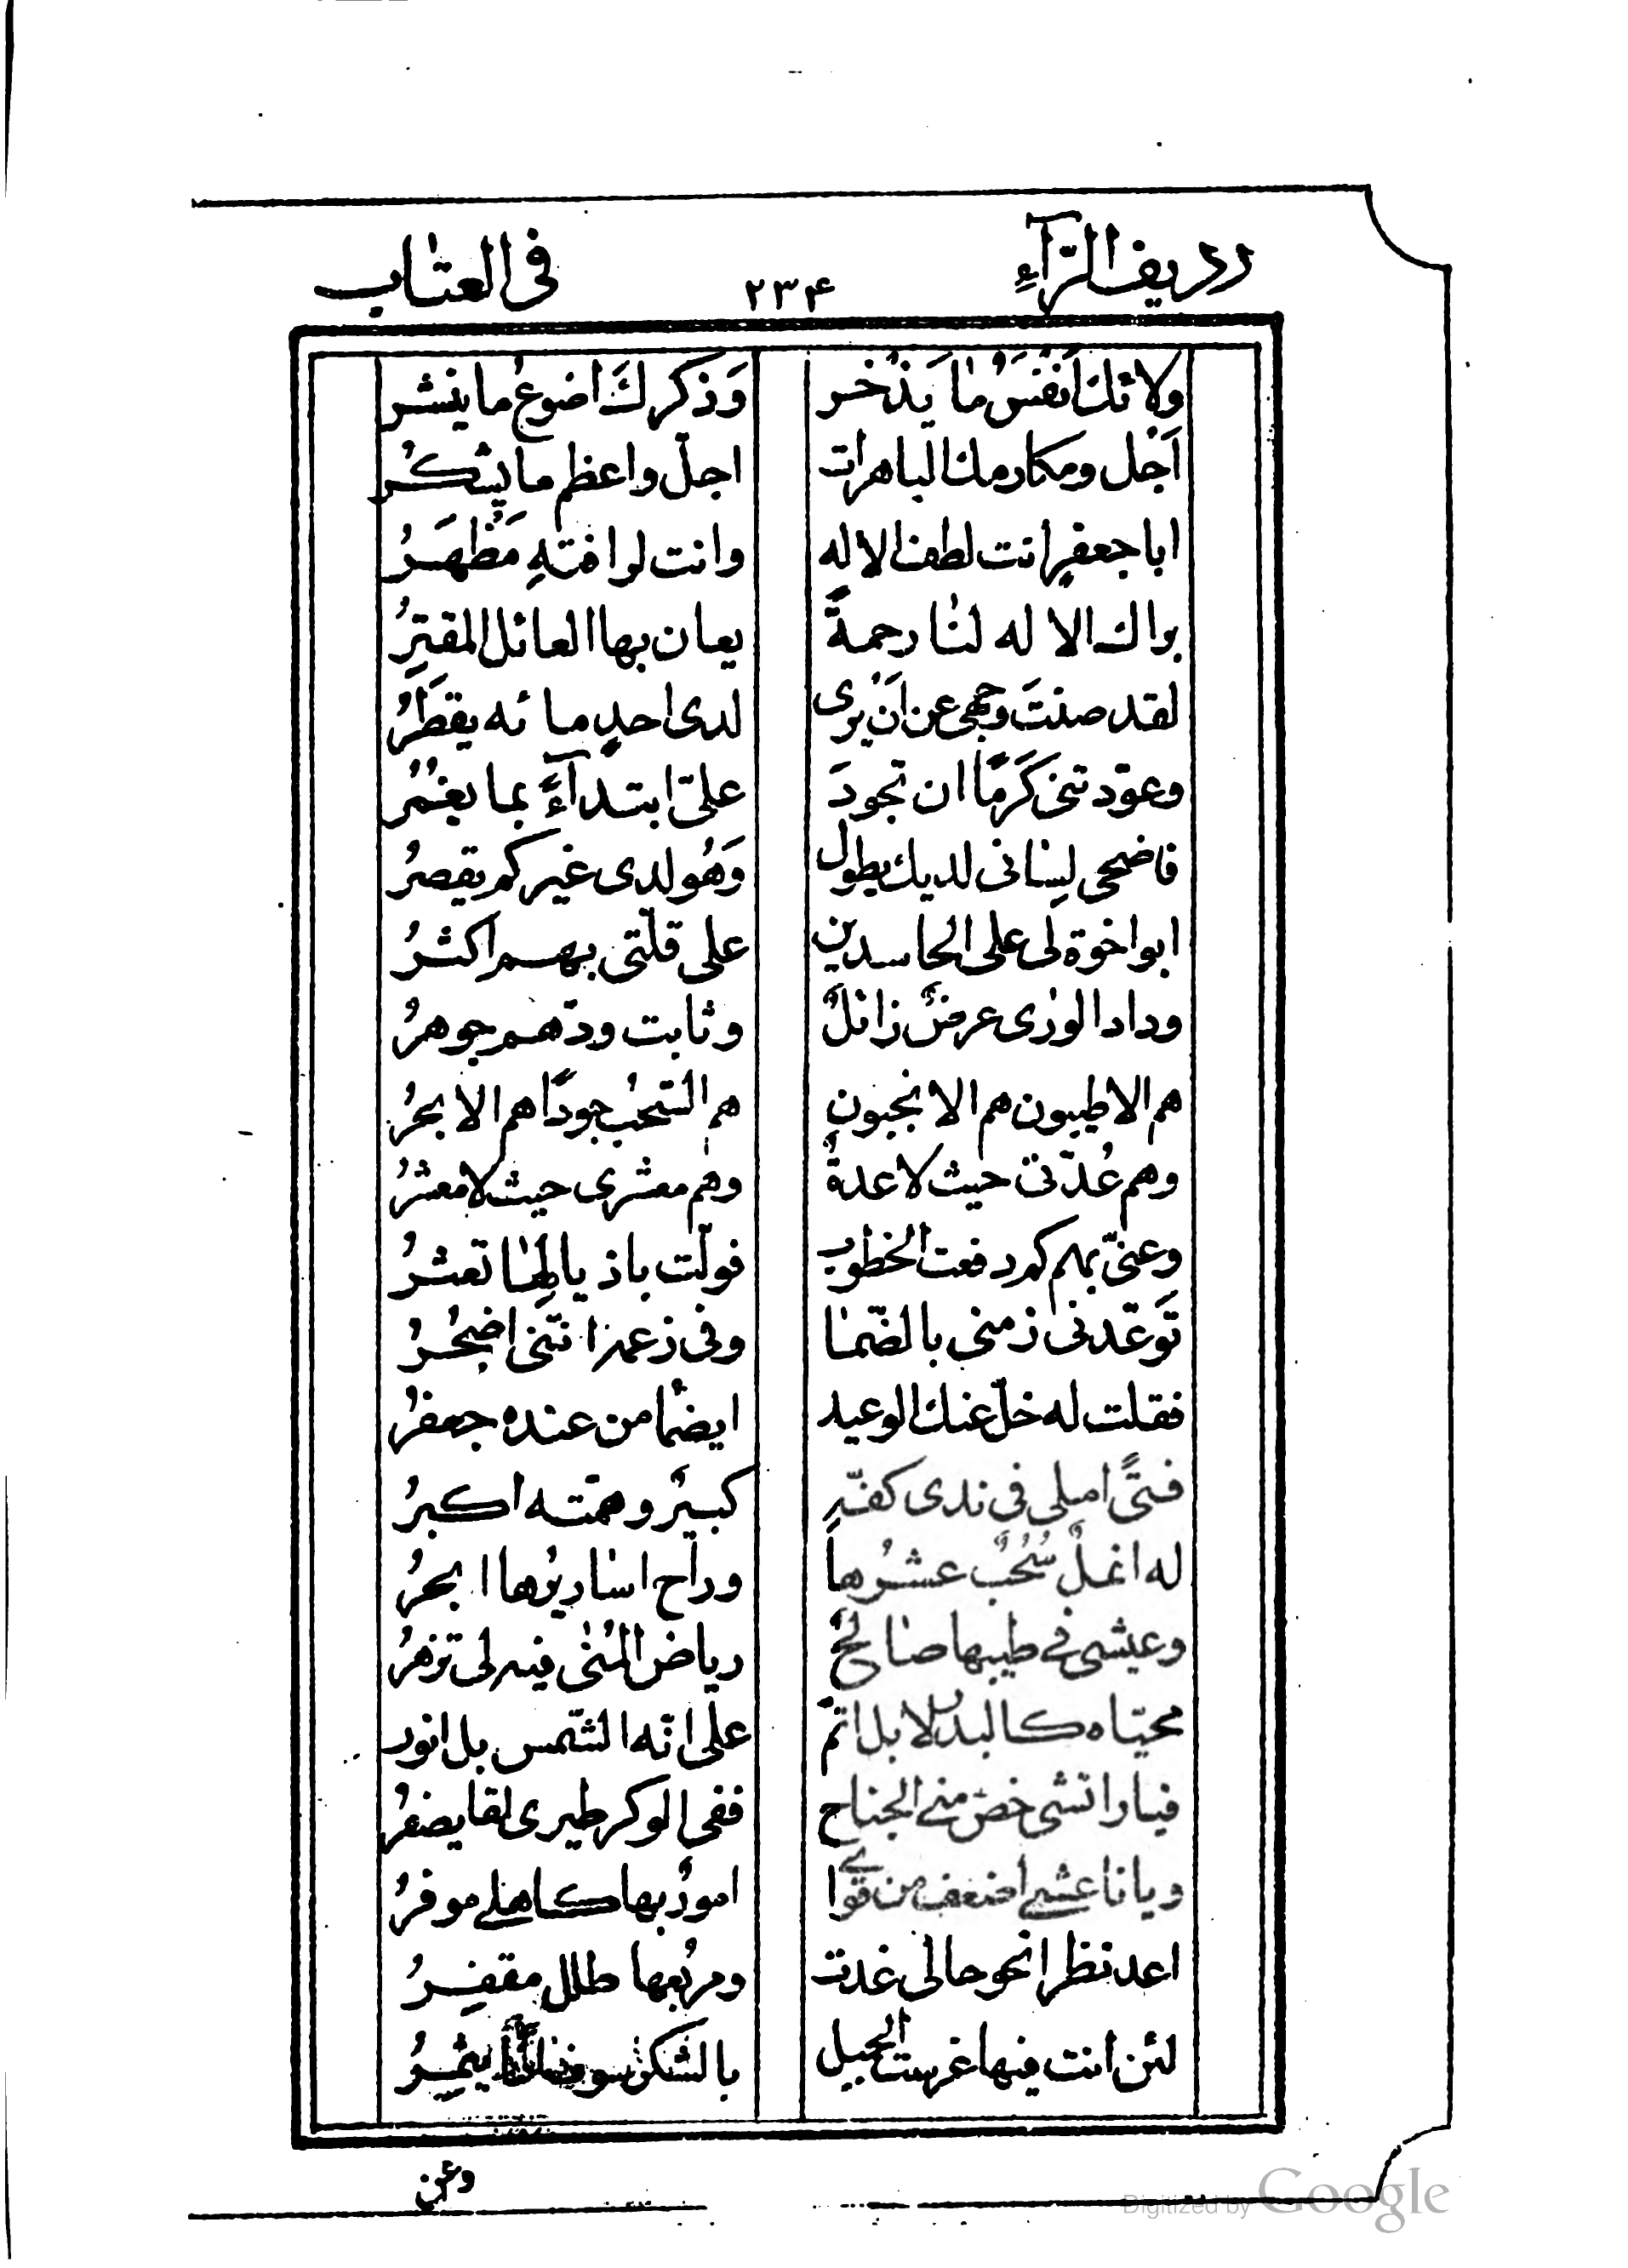 رديف الرّآءِ ٢٣۴ فى العتاب
ولائك انفَسُ ما يذخر وَذكركَ اضوعُ ما ينشر
اَجَل ومكارمك الباهرات اجلّ واعظم ما يشكرُ
ابا جعفرٍ انت لطف الاله وانت لرافتهِ مَظهَرُ
براك الاله لنا رحمةً يعان بها العائل المقترُ
لقد صنتَ وجهى عن اَن يرى لدى احدٍ مائه يقطَرُ
وعوّدتنى كَرَمًا ان تجودَ علىّ ابتدآءً بما يغمُرُ
فاضحى لِسانى لديك يطول وَهُو لدى غيركم يقصرُ
ابو اخوة لى على الحاسدين على قلّتى بهم اكثرُ
وداد الورى عرضٌ زائلٌ وثابت ودّهم جوهرُ
هم الاطيبون هم الانجبون هم السّحبُ جودًا هم الابحرُ
وهم عُدّتى حيث لا عدةٌ وهم معشرى حيث لا معشرُ
وعنّى بهم كم دفعت الخطوب فولّت باذيالِها تعثرُ
تَوَعّدنى زمنى بالضّما وفى زعمه انّنى اضجُرُ
فقلت له خلّ عنك الوعيد ايضما من عنده جعفرُ
فتًى املى فى ندى كفّهِ كبيرٌ وهمّته اكبرُ
له انملٌ سُحُبٌ عشرُها وراح اساريرُها ابحرُ
وعيشى فى طيبها صالحٌ رياض المُنى فيه لى تزهرُ
محيّاه كالبدر لا بل اتمّ على انّه الشّمس بل انور
فيا رائشى خصّ منى الجناح ففى الوكر طيرى لقا يصفرُ
ويا ناعشى اضعف من قوٰاى امورٌ بها كاهلى موقرُ
اعد نظرا نحو حالى غدت ومربُعها طلل مقفِرُ
لئن انت فيها غرست الجميل بالشكر سوف يثمِرُ
وعن
Digitized by Google